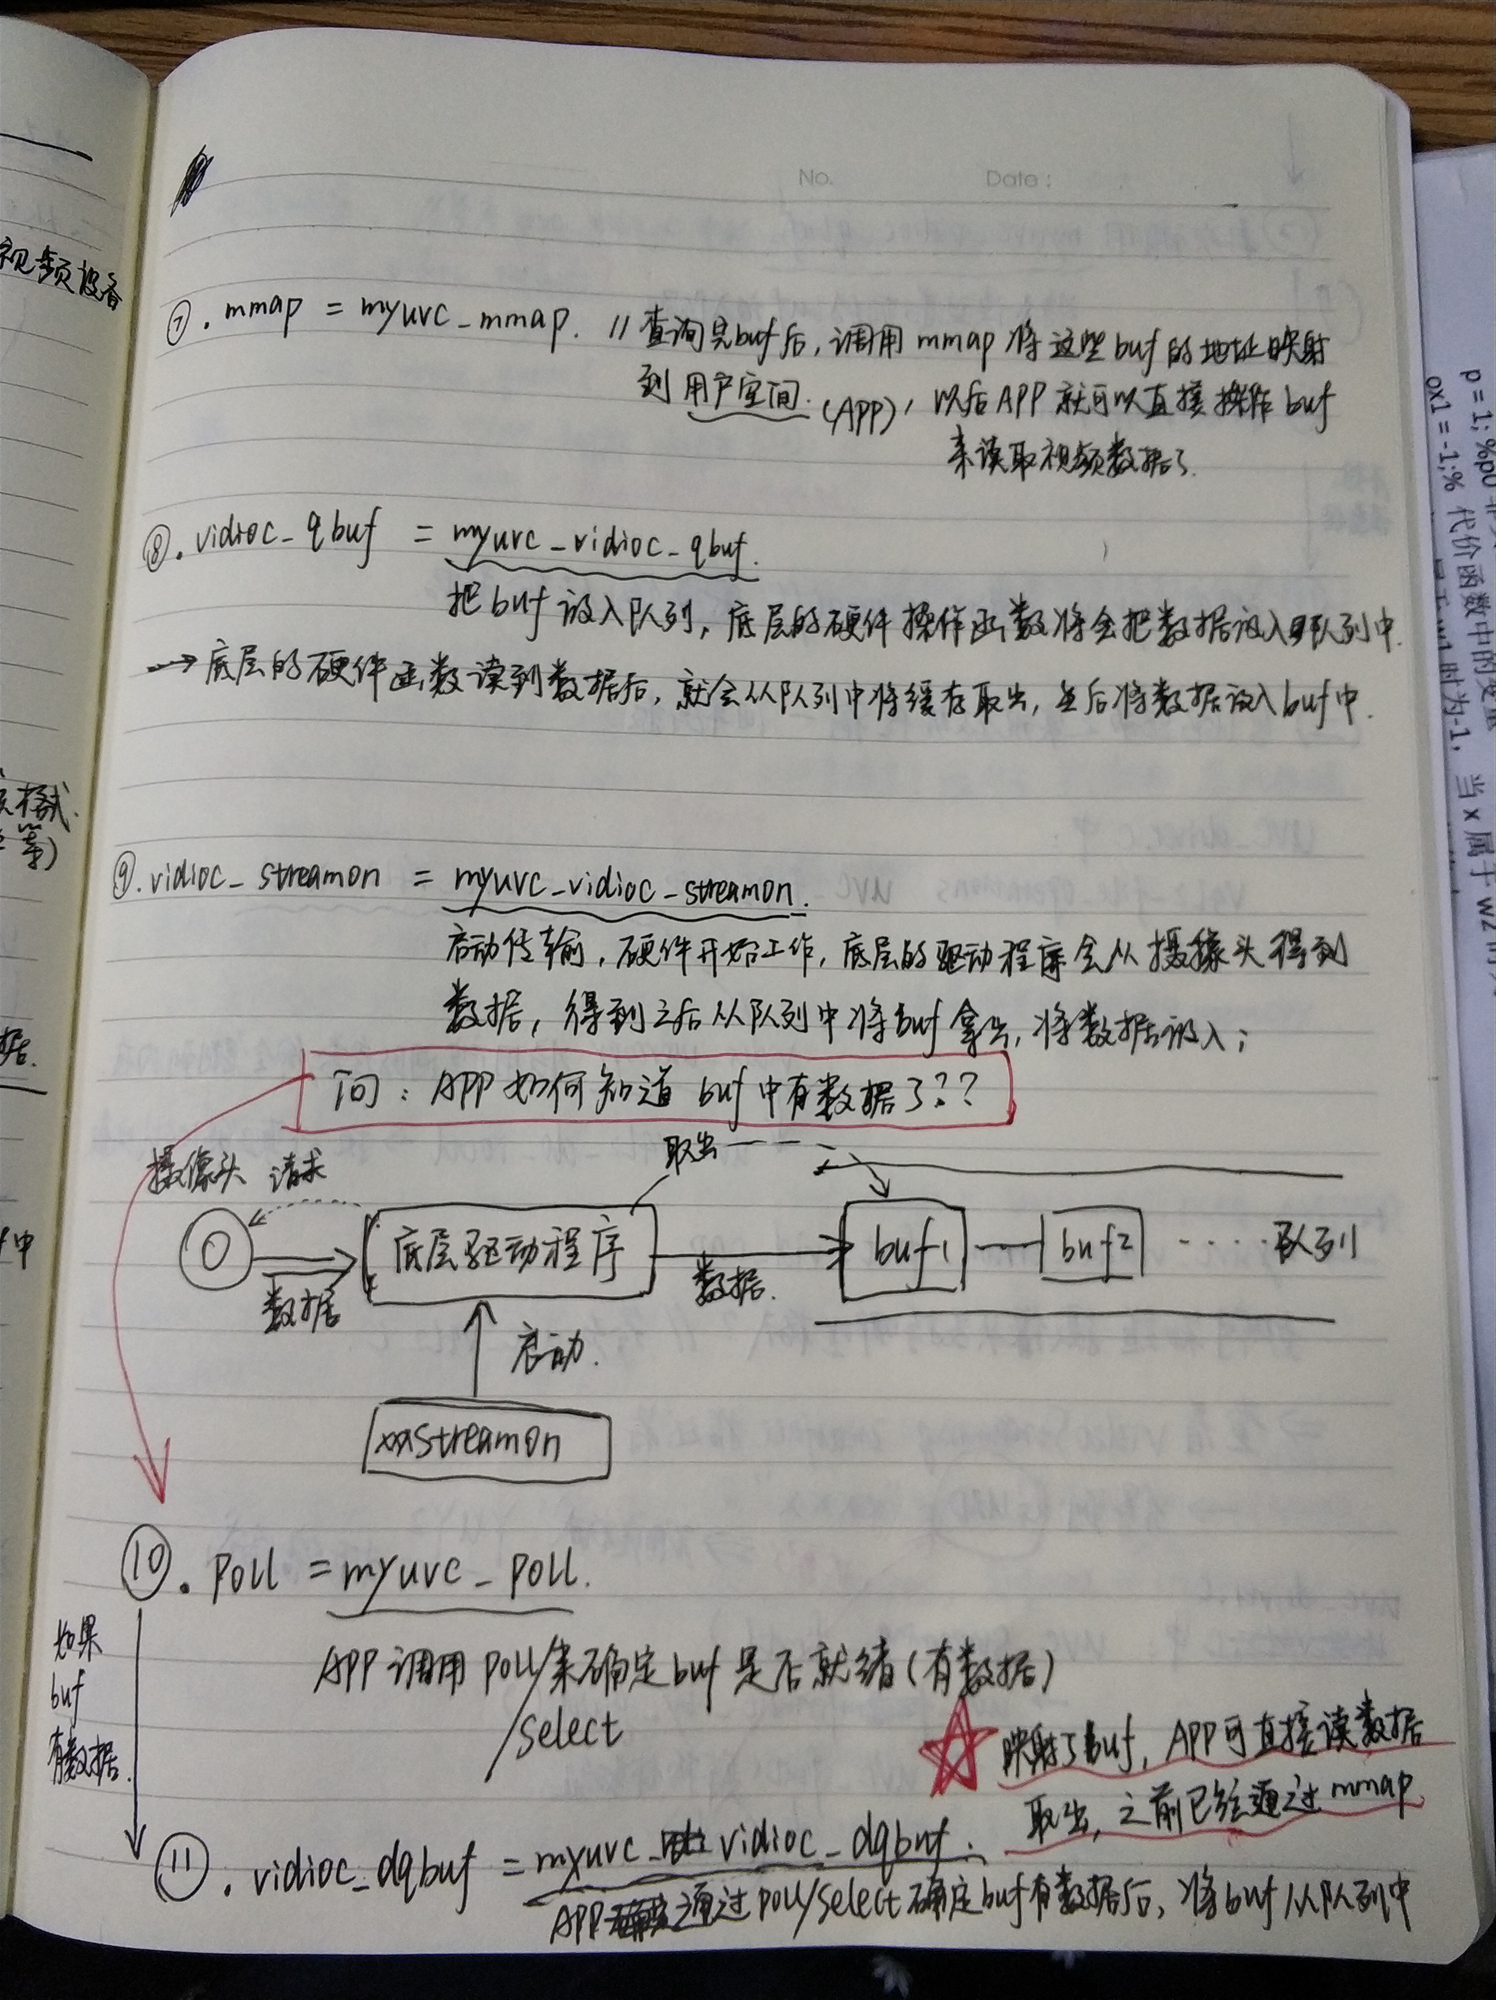 No.
Date:
视频设备
⑦. mmap = myuvc_mmap. // 查询完buf后, 调用 mmap 将这些buf的地址映射
到用户空间.(APP), 以后APP就可以直接操作buf
来读取视频数据了.
⑧. vidioc_qbuf = myuvc_vidioc_qbuf.
把buf放入队列, 底层的硬件操作函数将会把数据放入队列中.
→底层的硬件函数读到数据后, 就会从队列中将缓存取出, 然后将数据放入buf中.
格式.
等)
⑨. vidioc_streamon = myuvc_vidioc_streamon.
启动传输, 硬件开始工作, 底层的驱动程序会从摄像头得到
数据, 得到之后从队列中将buf拿出, 将数据放入;
据.
问: APP如何知道buf中有数据了??
取出
摄像头 请求
中
底层驱动程序
buf1
buf2
....队列
数据
数据.
启动.
xxxstreamon
⑩. poll = myuvc_poll.
如果
buf
有数据.
APP调用poll/来确定buf是否就绪(有数据)
/select
映射了buf, APP可直接读数据
取出, 之前已经通过mmap
⑪. vidioc_dqbuf = myuvc_vidioc_dqbuf.
APP通过poll/select确定buf有数据后, 将buf从队列中
p = 1; %p0
ox1 = -1;% 代价函数中的变量
时为-1, 当 x 属于 w2